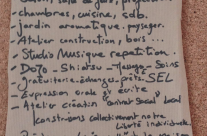 - chambres, cuisine, sdb.
jardin aromatique, paysager.
- Atelier construction, bois...
- Studio Musique repetition.
- DoJo - Shiatsu - Massage - Soins
gratuiterie. échanges. prêts. SEL
- Expression orale & écrite
- Atelier création "animat Social" local
construisons collectivement notre
Liberté Individuelle